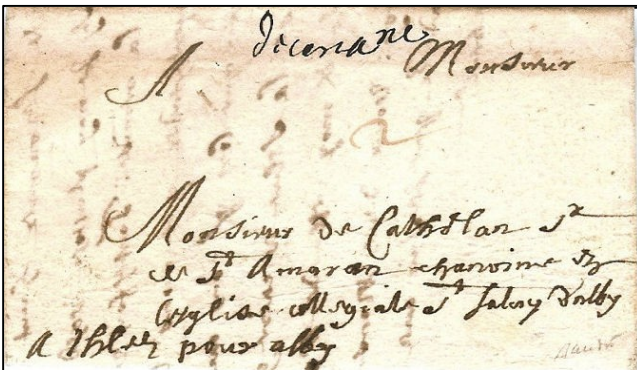 A Monsieur
Monsieur de Cathelan Sr
de St Amaran chanoine en
leglise collegiale St Salvy dalby
A Thlez pour alby